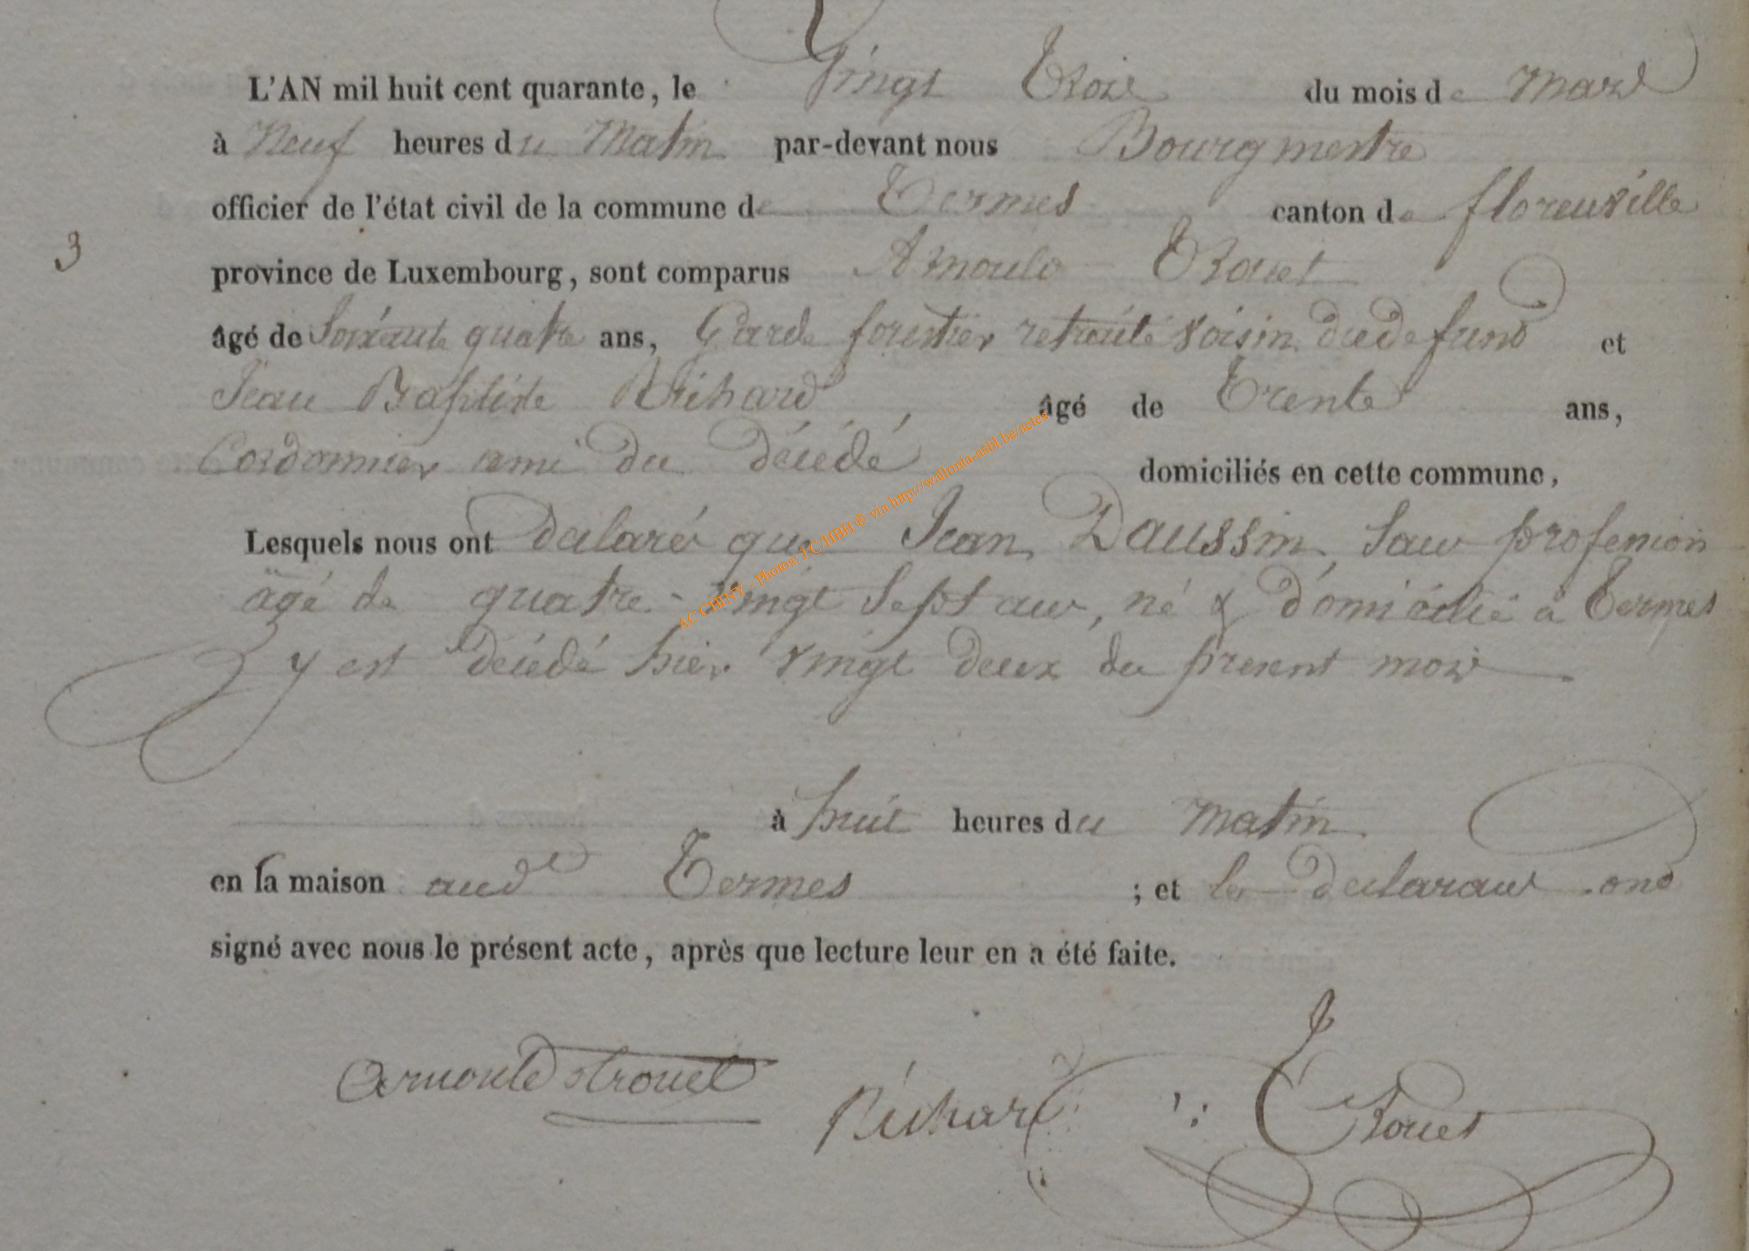 L'AN mil huit cent quarante, le Vingt Trois du mois de mars
à Neuf heures du Matin par-devant nous Bourgmestre
officier de l'état civil de la commune de Termes canton de florenville
3
province de Luxembourg, sont comparus Arnould Trouet
âgé de Soixante quatre ans, Garde forestier retraité voisin du defund et
Jean Baptiste Richard âgé de Trente ans,
Cordonnier ami du décédé domiciliés en cette commune,
Lesquels nous ont declaré que Jean Daussin, Sans profession
agé de quatre-vingt Sept ans, né & domicilié à Termes
y est décédé hier vingt deux du present mois
à huit heures du matin
en sa maison aud Termes ; et les declarans ond
signé avec nous le présent acte, après que lecture leur en a été faite.
Arnould trouet Richard Trouet
AC CHINY - Photos LC HBH © via http://wallonia-asbl.be/actes